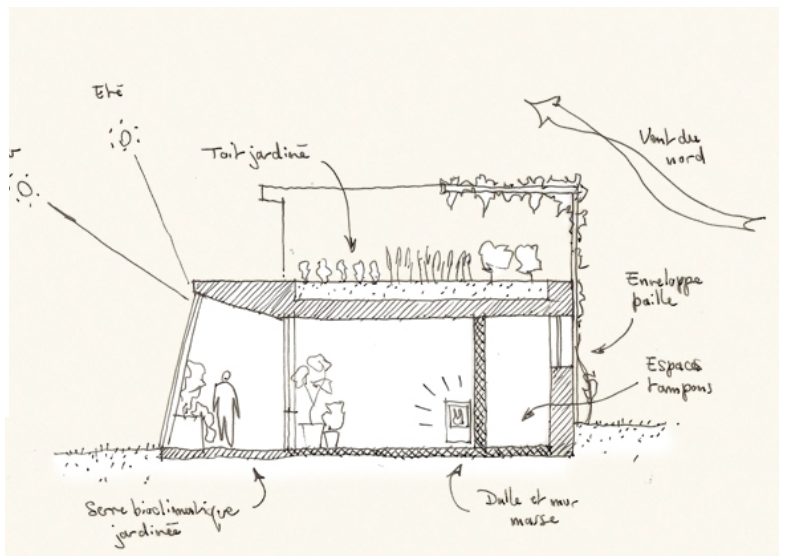 Eté
Toit jardiné
Vent du
nord
Enveloppe
paille
Espaces
tampons
Serre bioclimatique
jardinée
Dalle et mur
masse